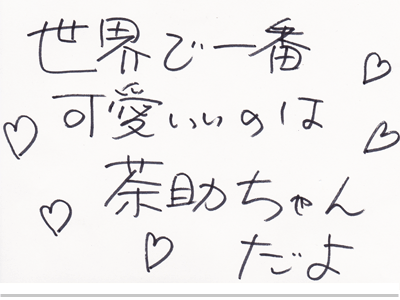 世界で一番
可愛いいのは
茶助ちゃん
だよ